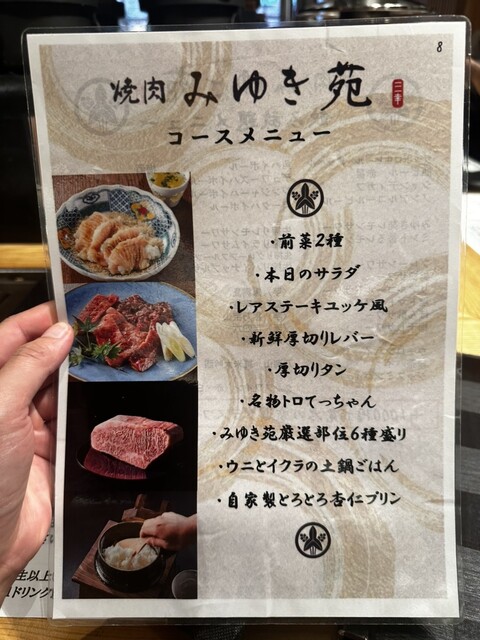 8
焼肉 みゆき苑
コースメニュー
・前菜2種
・本日のサラダ
・レアステーキユッケ風
・新鮮厚切りレバー
・厚切りタン
・名物トロてっちゃん
・みゆき苑厳選部位6種盛り
・ウニとイクラの土鍋ごはん
・自家製とろとろ杏仁プリン
生以上
ドリンク